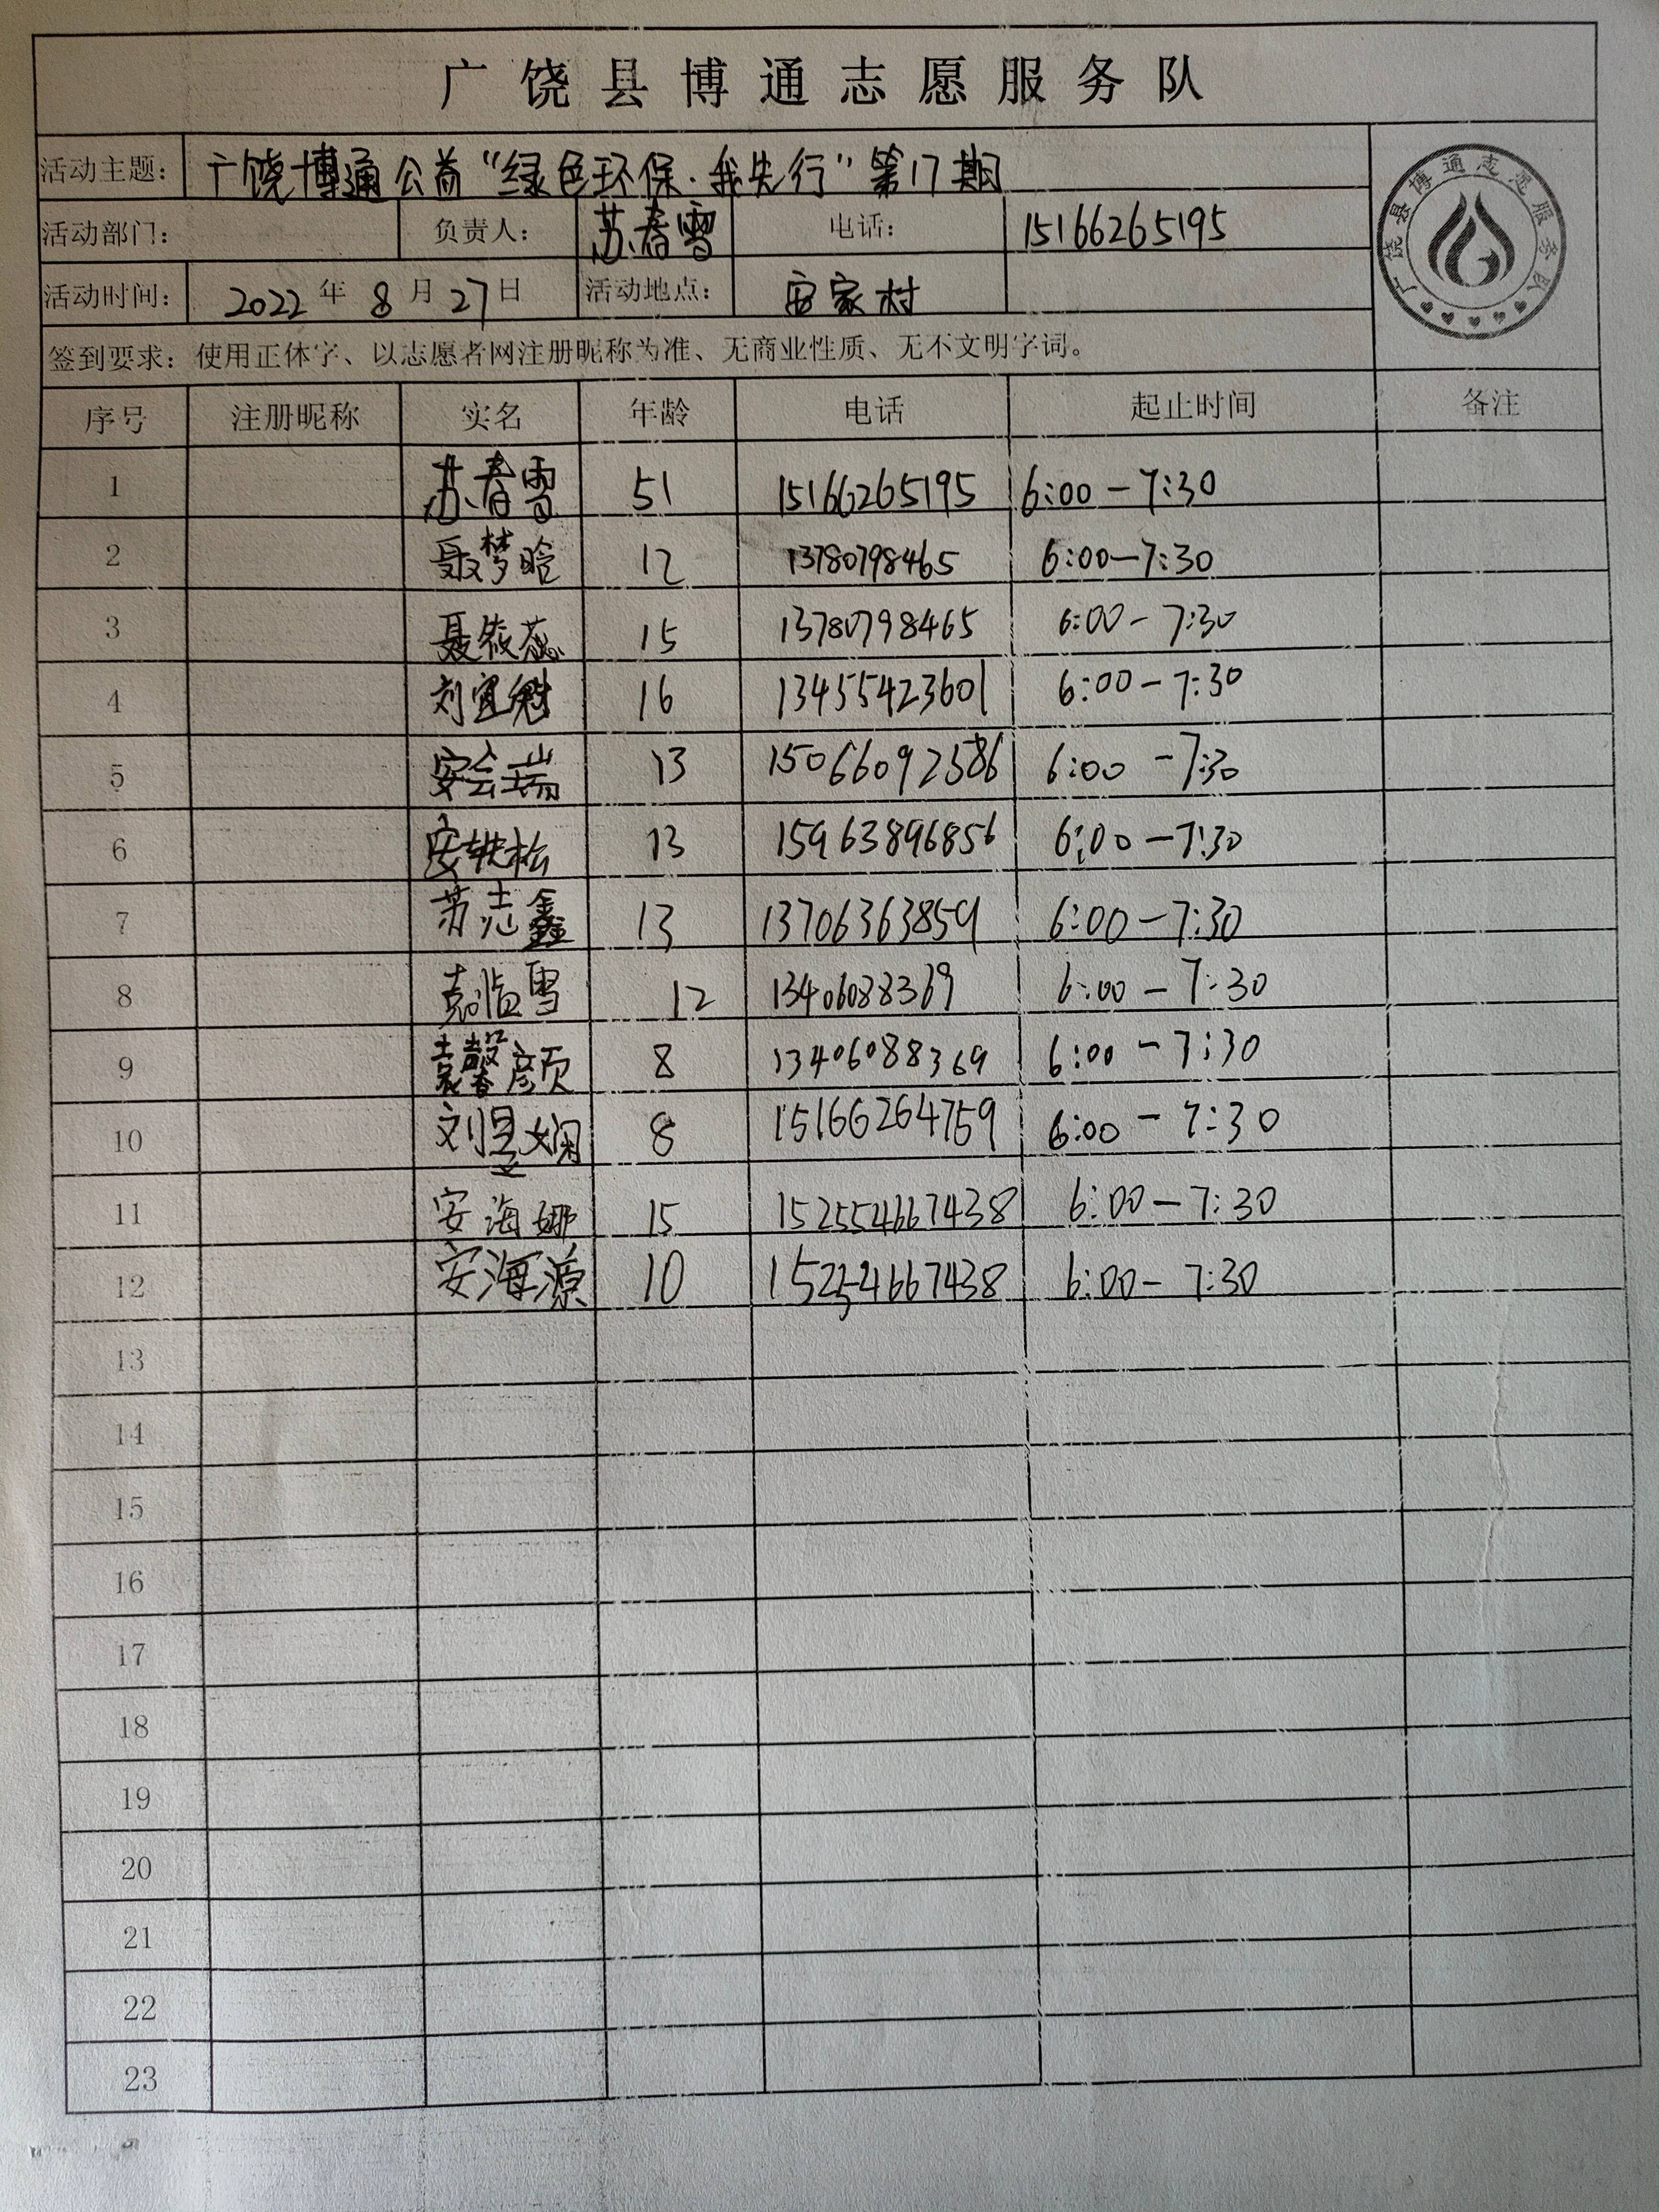 广饶县博通志愿服务队
活动主题： 广饶博通公益“绿色环保·我先行”第17期
活动部门： 负责人： 苏春雪 电话： 15166265195
活动时间： 2022年8月27日 活动地点： 安家村
广饶县博通志愿服务队
签到要求：使用正体字、以志愿者网注册昵称为准、无商业性质、无不文明字词。
序号 注册昵称 实名 年龄 电话 起止时间 备注
1 苏春雪 51 15166265195 6:00-7:30
2 聂梦晗 12 13780798465 6:00-7:30
3 聂筱蕊 15 13780798465 6:00-7:30
4 刘宜魁 16 13455423601 6:00-7:30
5 安会瑞 13 6:00-7:30
6 安轶松 13 15963896856 6:00-7:30
7 苏志鑫 13 13706363859 6:00-7:30
8 袁临雪 12 13406088369 6:00-7:30
9 袁馨颜 8 13406088369 6:00-7:30
10 刘昱娴 8 15166264759 6:00-7:30
11 安海娜 15 152554667438 6:00-7:30
12 安海源 10 6:00-7:30
13
14
15
16
17
18
19
20
21
22
23